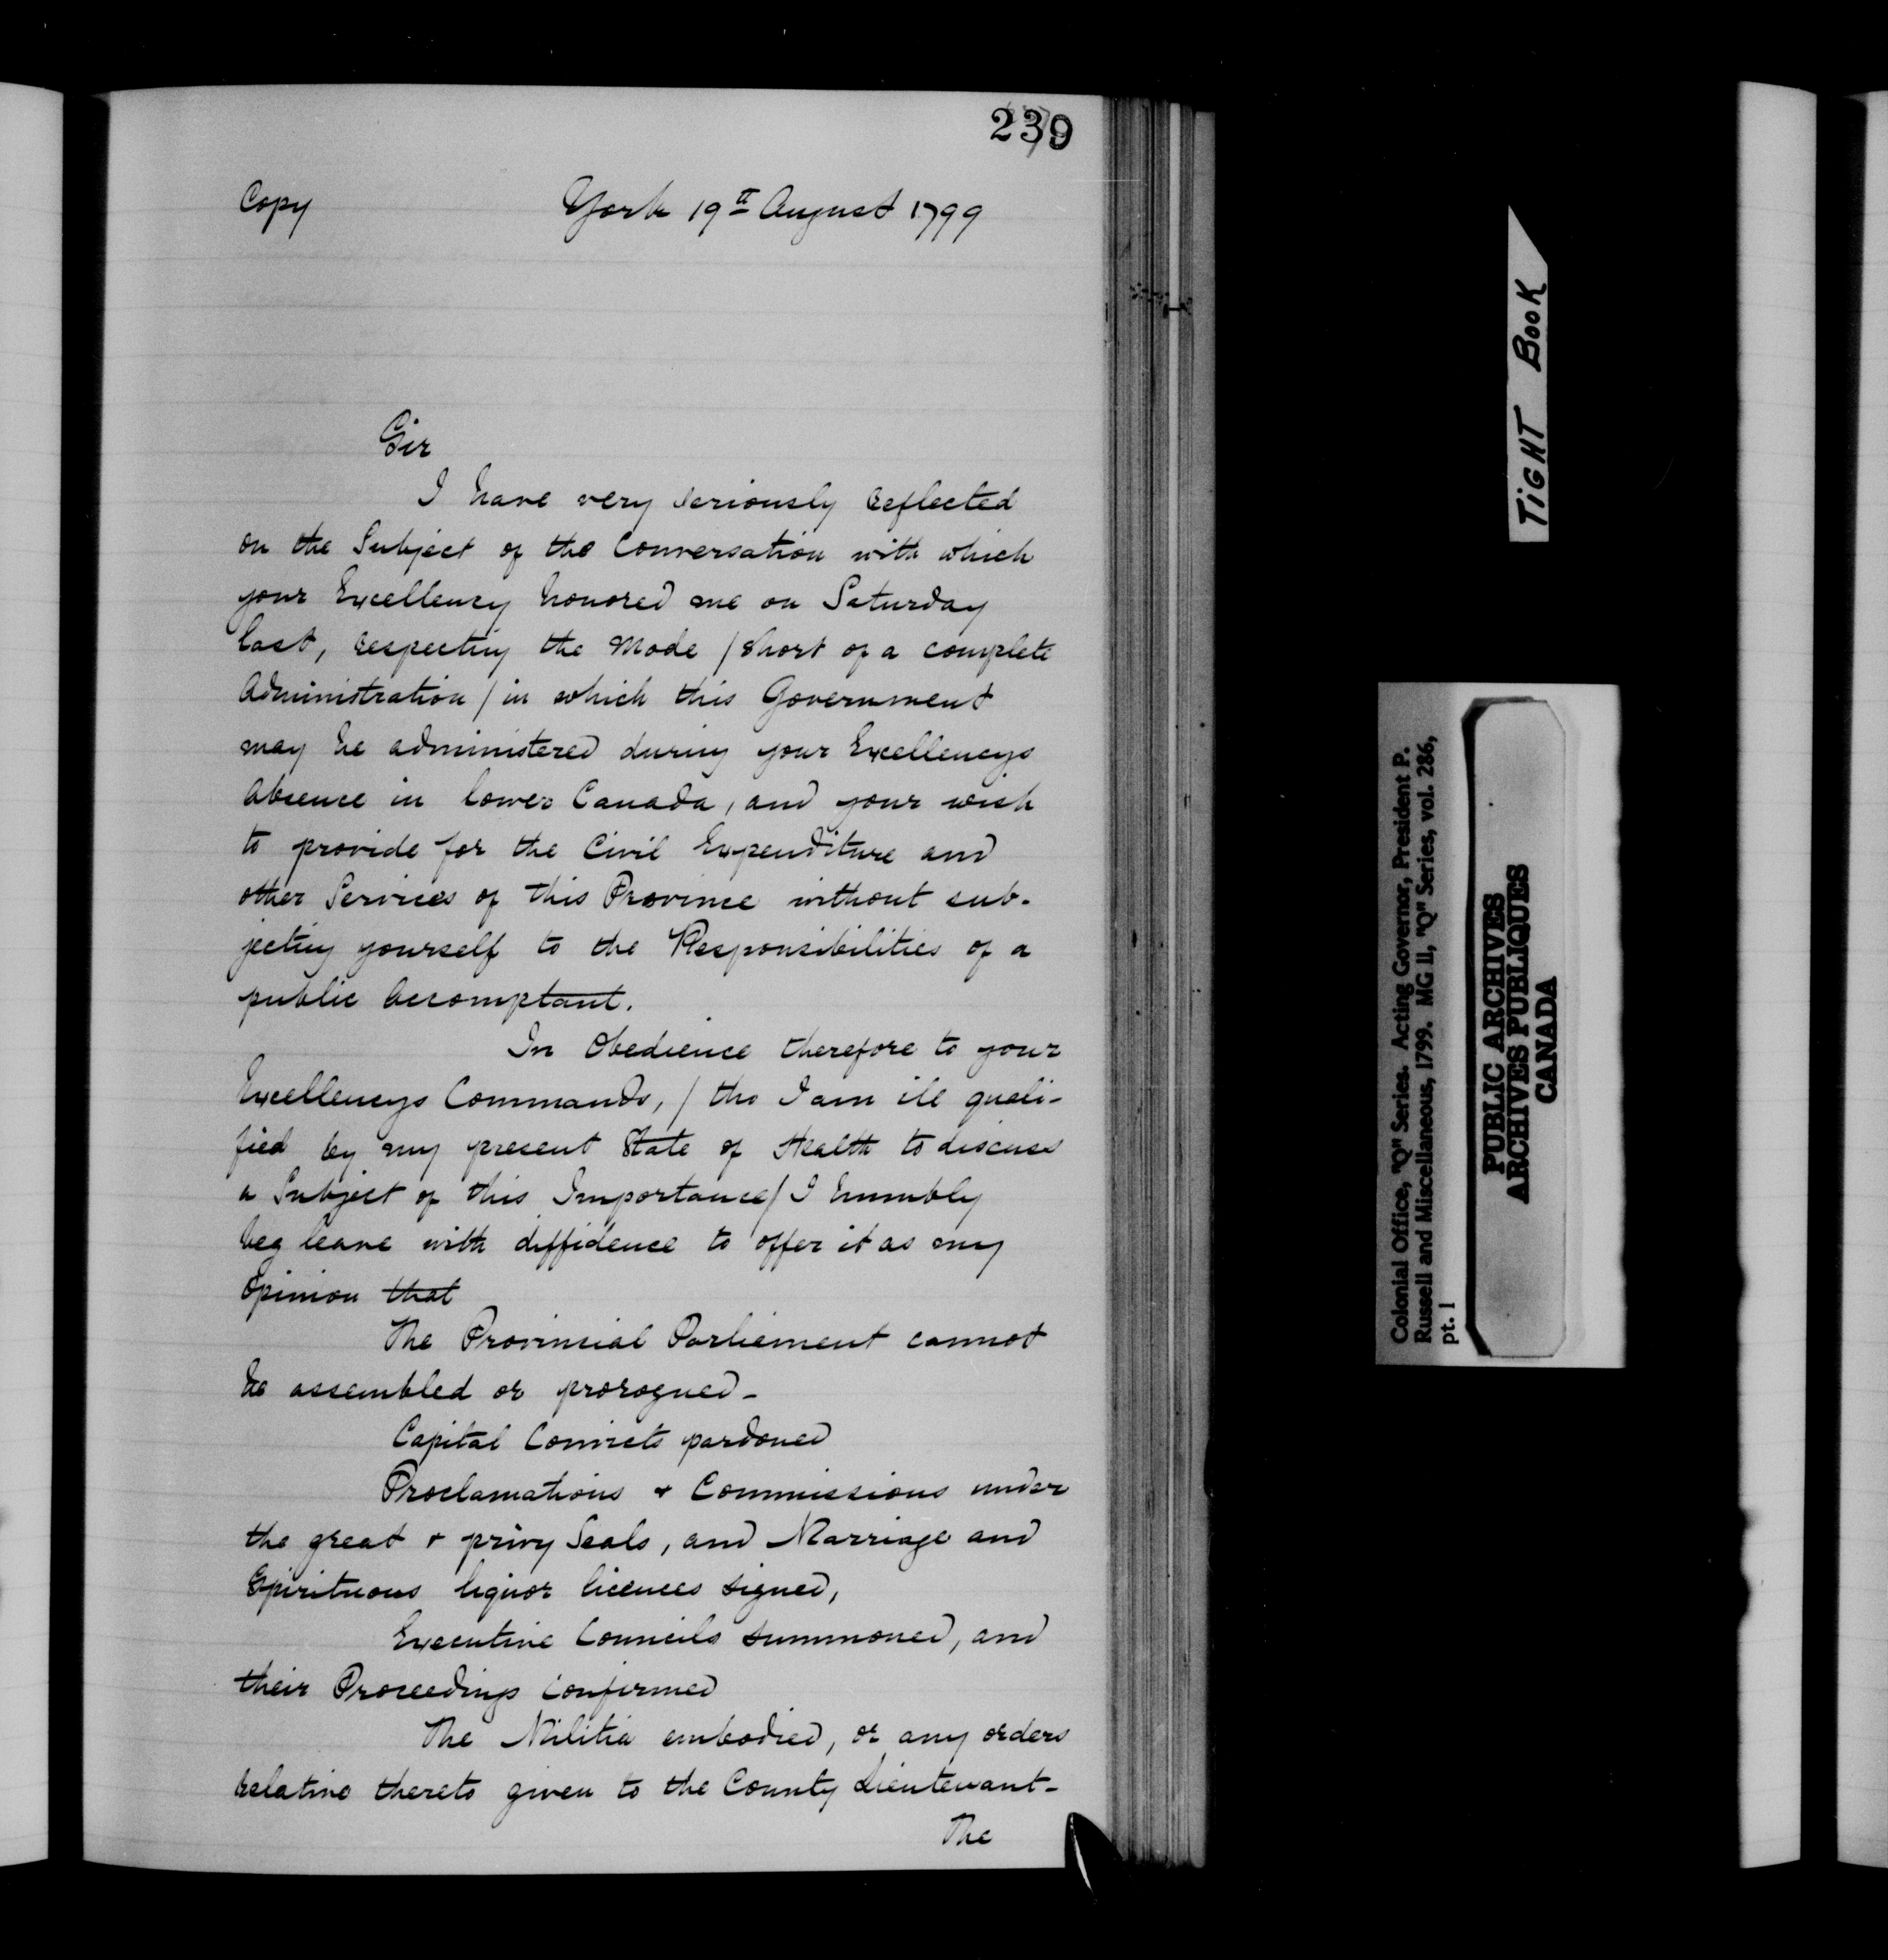 239
Copy
York 19th August 1799
Sir
I have very seriously reflected
on the Subject of the Conversation with which
your Excellency honored me on Saturday
last, respecting the Mode / short of a complete
Administration / in which this Government
may be administered during your Excellencys
Absence in lower Canada, and your wish
to provide for the Civil Expenditure and
other Services of this Province without sub-
jecting yourself to the Responsibilities of a
public Accomptant.
In Obedience therefore to your
Excellencys Commands, / tho I am ill quali-
fied by my present State of Health to discuss
a Subject of this Importance / I humbly
beg leave with diffidence to offer it as my
Opinion that
The Provincial Parliement cannot
be assembled or prorogued-
Capital Convicts pardoned
Proclamations & Commissions under
the great & privy Seals, and Marriage and
Spirituous liquor licences signed,
Executive Councils summoned, and
their Proceedings confirmed
The Militia embodied, or any orders
relative thereto given to the County Lieutenant-
The
TIGHT BOOK
Colonial Office, "Q" Series. Acting Governor, President P.
Russell and Miscellaneous, 1799. MG 11, "Q" Series, vol. 286,
pt. 1
PUBLIC ARCHIVES
ARCHIVES PUBLIQUES
CANADA